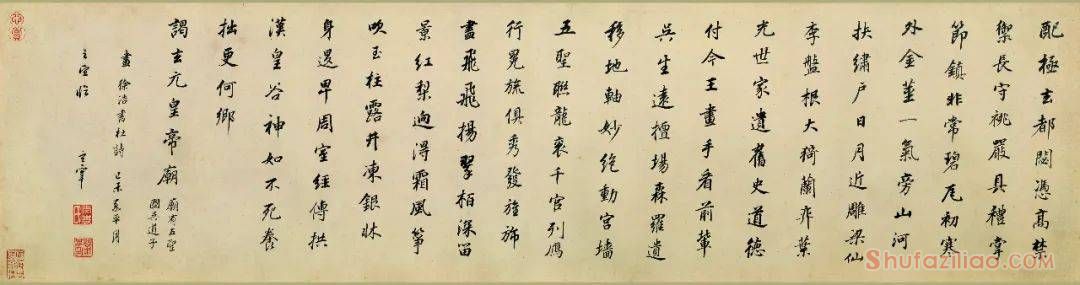 配極玄都閟憑高禁
禦長守祧嚴具禮掌
節鎮非常碧瓦初寒
外金莖一氣旁山河
扶繡戶日月近雕梁仙
李盤根大猗蘭奕葉
光世家遺舊史道德
付今王畫手看前輩
吳生遠擅場森羅遺
移地軸妙絕動宮墻
五聖聯龍袞千官列鴈
行冕旒俱秀發旌旆
盡飛飛揚翠柏深留
景紅梨迥得霜風箏
吹玉柱露井凍銀牀
身退卑周室經傳拱
漢皇谷神如不死養
拙更何鄉
謁玄元皇帝廟
廟有五聖
圖吳道子
書徐浩書杜詩 己未 月
玄宰
玄宰臨
Shufaziliao.com